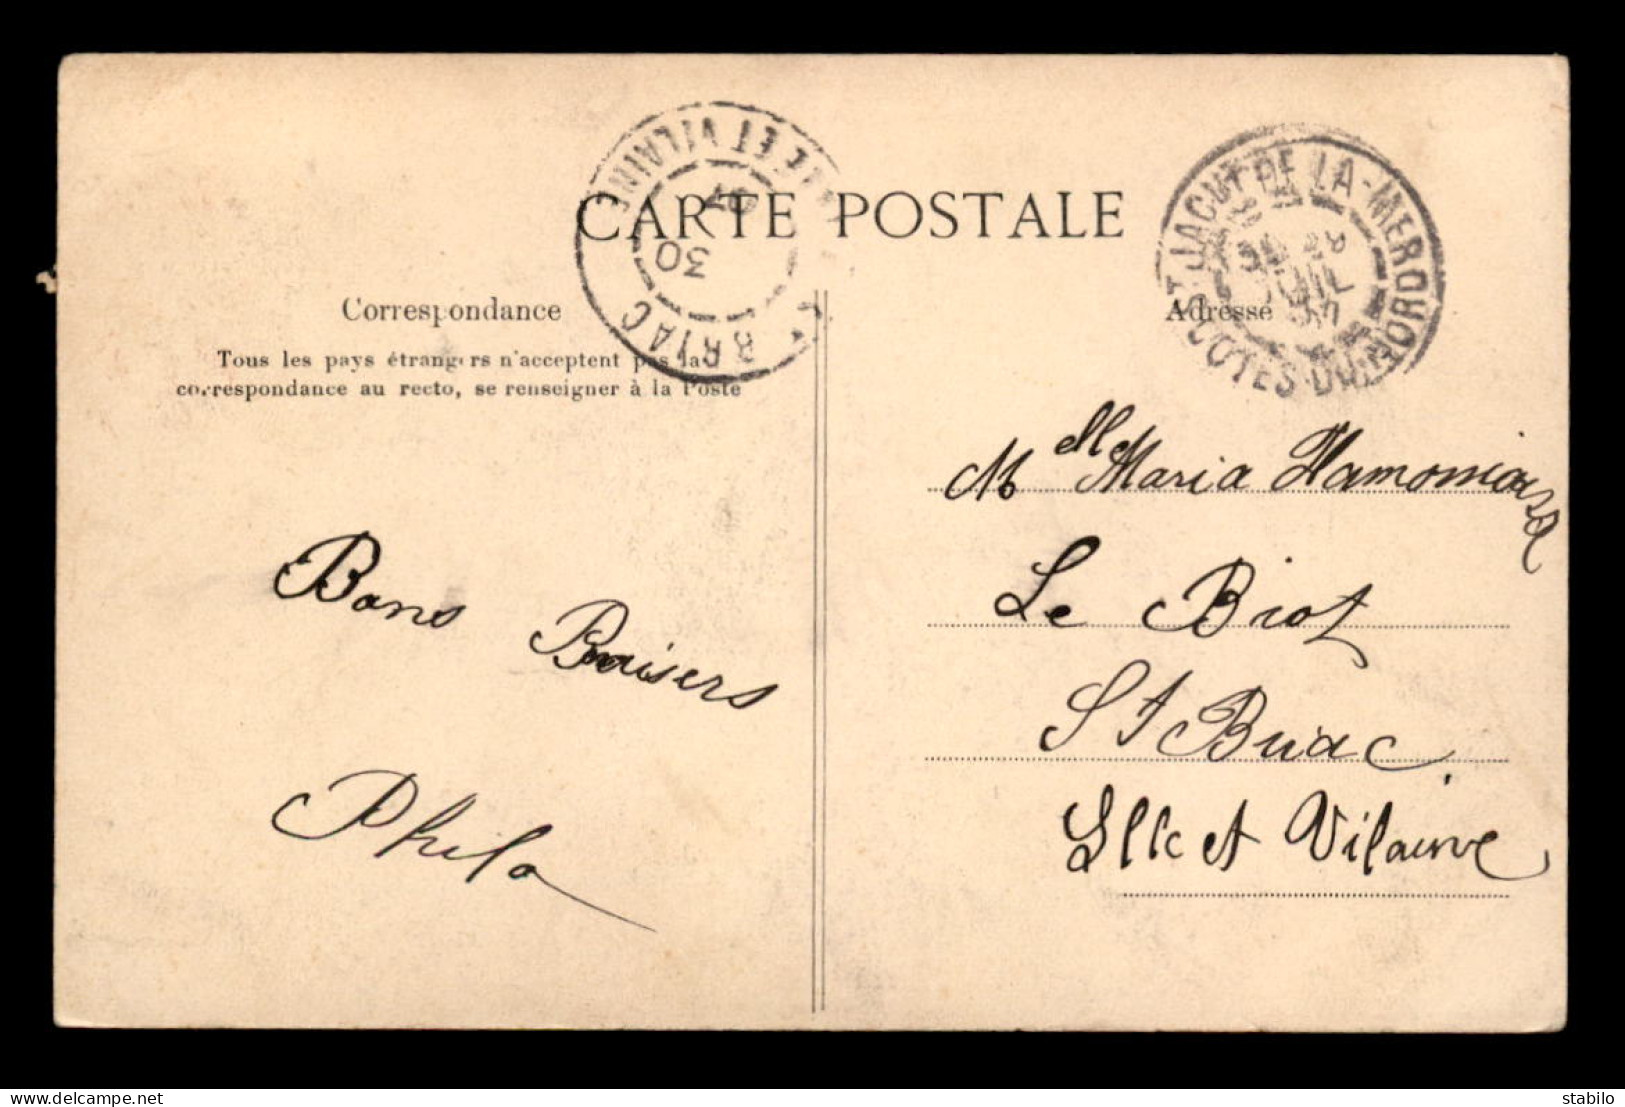 CARTE POSTALE
Correspondance
Tous les pays étrangers n'acceptent pas la
correspondance au recto, se renseigner à la Poste
Bons Baisers
Phila
ILLE ET VILAINE
ST BRIAC
30
07
Adresse
ST JACUT DE LA-MER
CÔTES DU NORD
JUIL
07
Melle Maria
Le Biot
St Briac
Ille et Vilaine
delcampe.net
stabilo